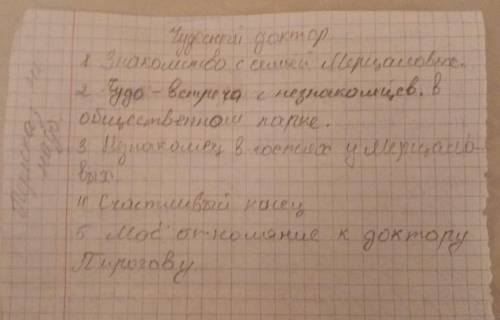 Чудесный доктор
1 Знакомство с семьёй Мерцаловых.
2 Чудо-встреча с незнакомцев. в
общественном парке.
3 Незнакомец в гостях у Мерцало-
вых.
4 Счастливый конец
5 Моё отношение к доктору
Пирогову